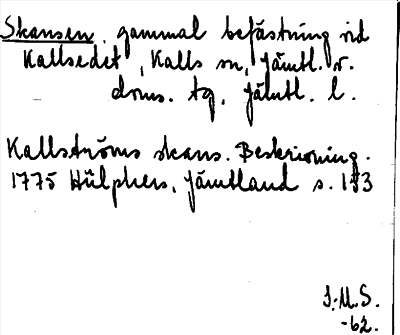 Skansen. gammal befästning vid
Kallsedet, Kalls sn, Jämtl. v.
doms. tg, Jämtl. l.
Kallströms skans. Beskrivning.
1775 Hülphers, Jämtland s. 153
J.M.S.
-62.